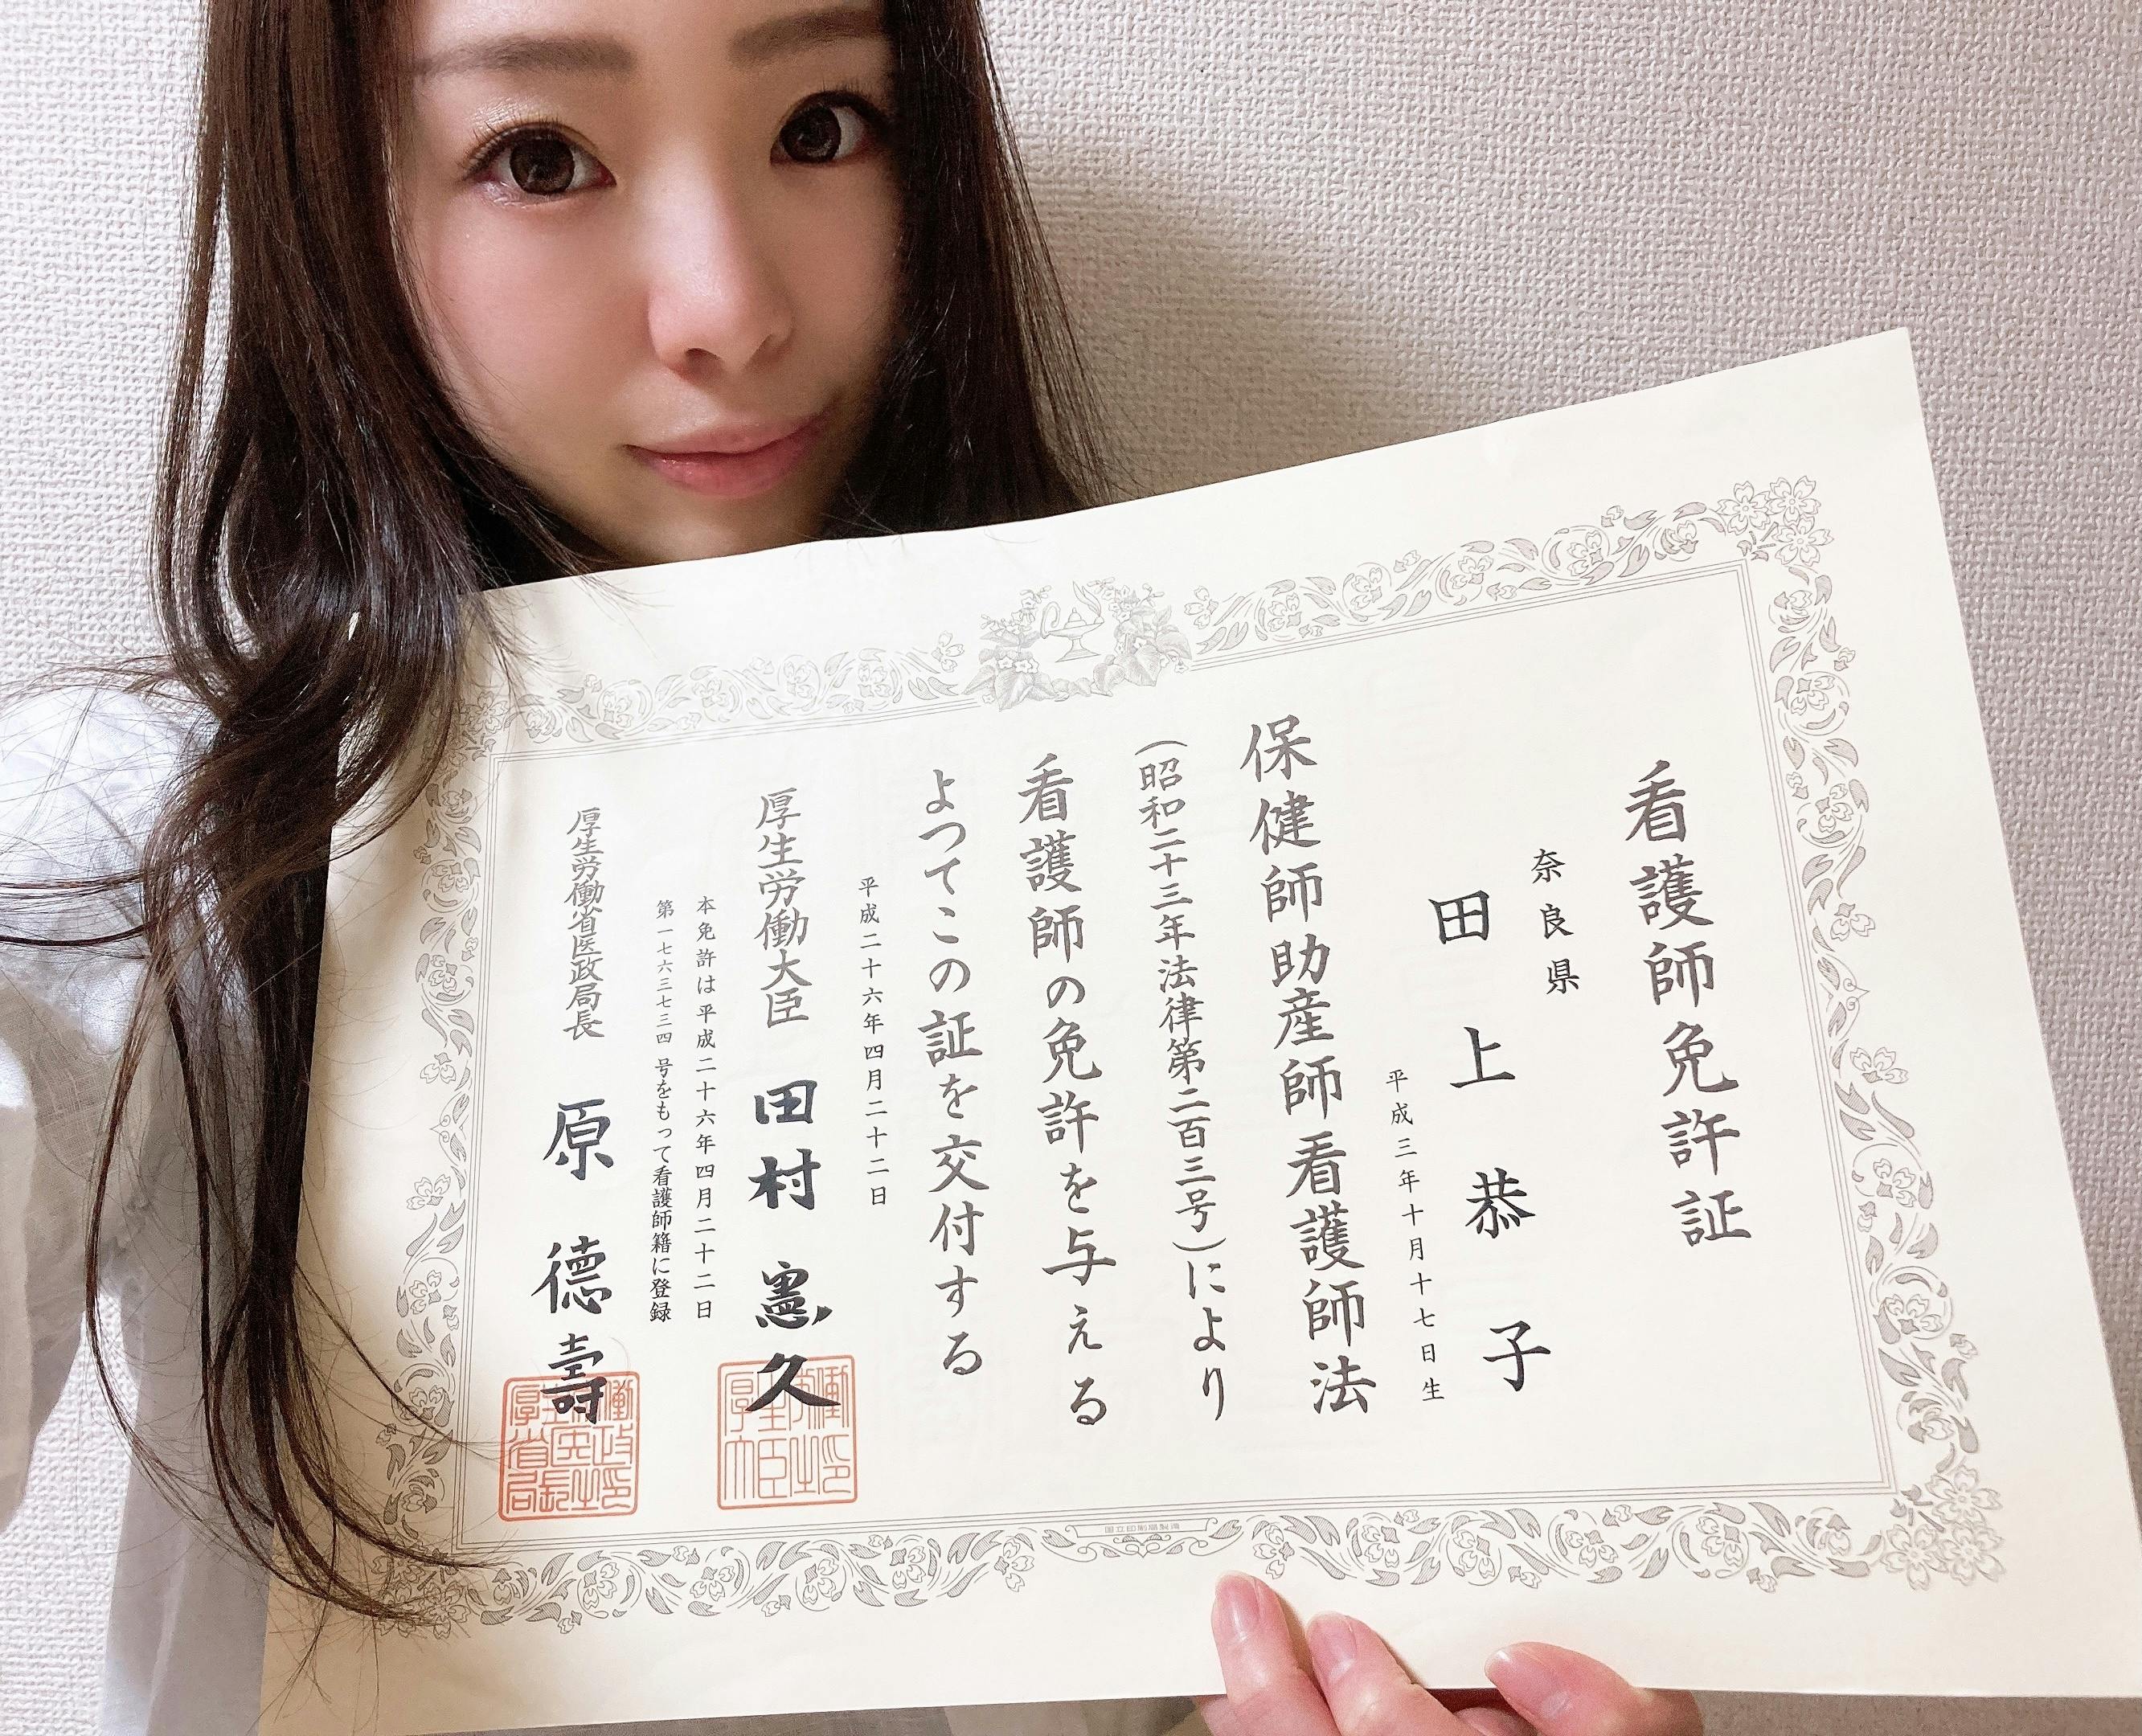 看護師免許証
奈良県
田上恭子
平成三年十月十七日生
保健師助産師看護師法
(昭和二十三年法律第二百三号)により
看護師の免許を与える
よつてこの証を交付する
平成二十六年四月二十二日
厚生労働大臣 田村憲久
本免許は平成二十六年四月二十二日
第一七六三七三四号をもって看護師籍に登録
厚生労働省医政局長 原德壽
国立印刷局製造